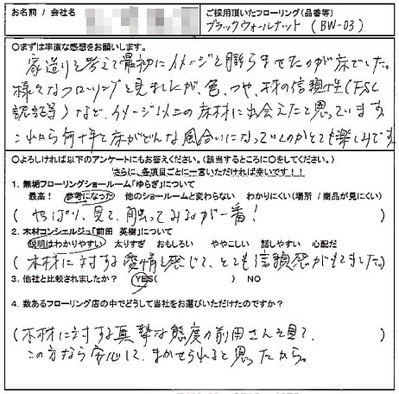 お名前 / 会社名
ご採用頂いたフローリング(品番等)
ブラックウォールナット (BW-03)
○まずは率直な感想をお願いします。
家造りを考えて最初にイメージを膨らませたのが床でした。
様々なフローリングを見ましたが、色、つや、材の信頼性(FSC
認証等)など、イメージ以上の床材に出会えたと思っています。
これから何十年と床がどんな風合いになっていくのかとても楽しみです
○よろしければ以下のアンケートにもお答えください。(該当するところに○をしてください。)
さらに、各項目ごとに一言いただければ幸いです!!
1. 無垢フローリングショールーム「ゆらぎ」について
最高! 参考になった 他のショールームと変わらない わかりにくい(場所 / 商品が見にくい)
(やっぱり、見て、触ってみるのが一番!)
2. 木材コンシェルジュ「前田 英樹」について
説明はわかりやすい 太りすぎ おもしろい ややこしい 話しやすい 心配だ
(木材に対する愛情を感じて、とても信頼感がもてました)
3. 他社と比較されましたか? YES( ) NO
4. 数あるフローリング店の中でどうして当社をお選びいただけたのですか?
(木材に対する真摯な態度の前田さんを見て、
この方なら安心して、まかせられると思ったから。)